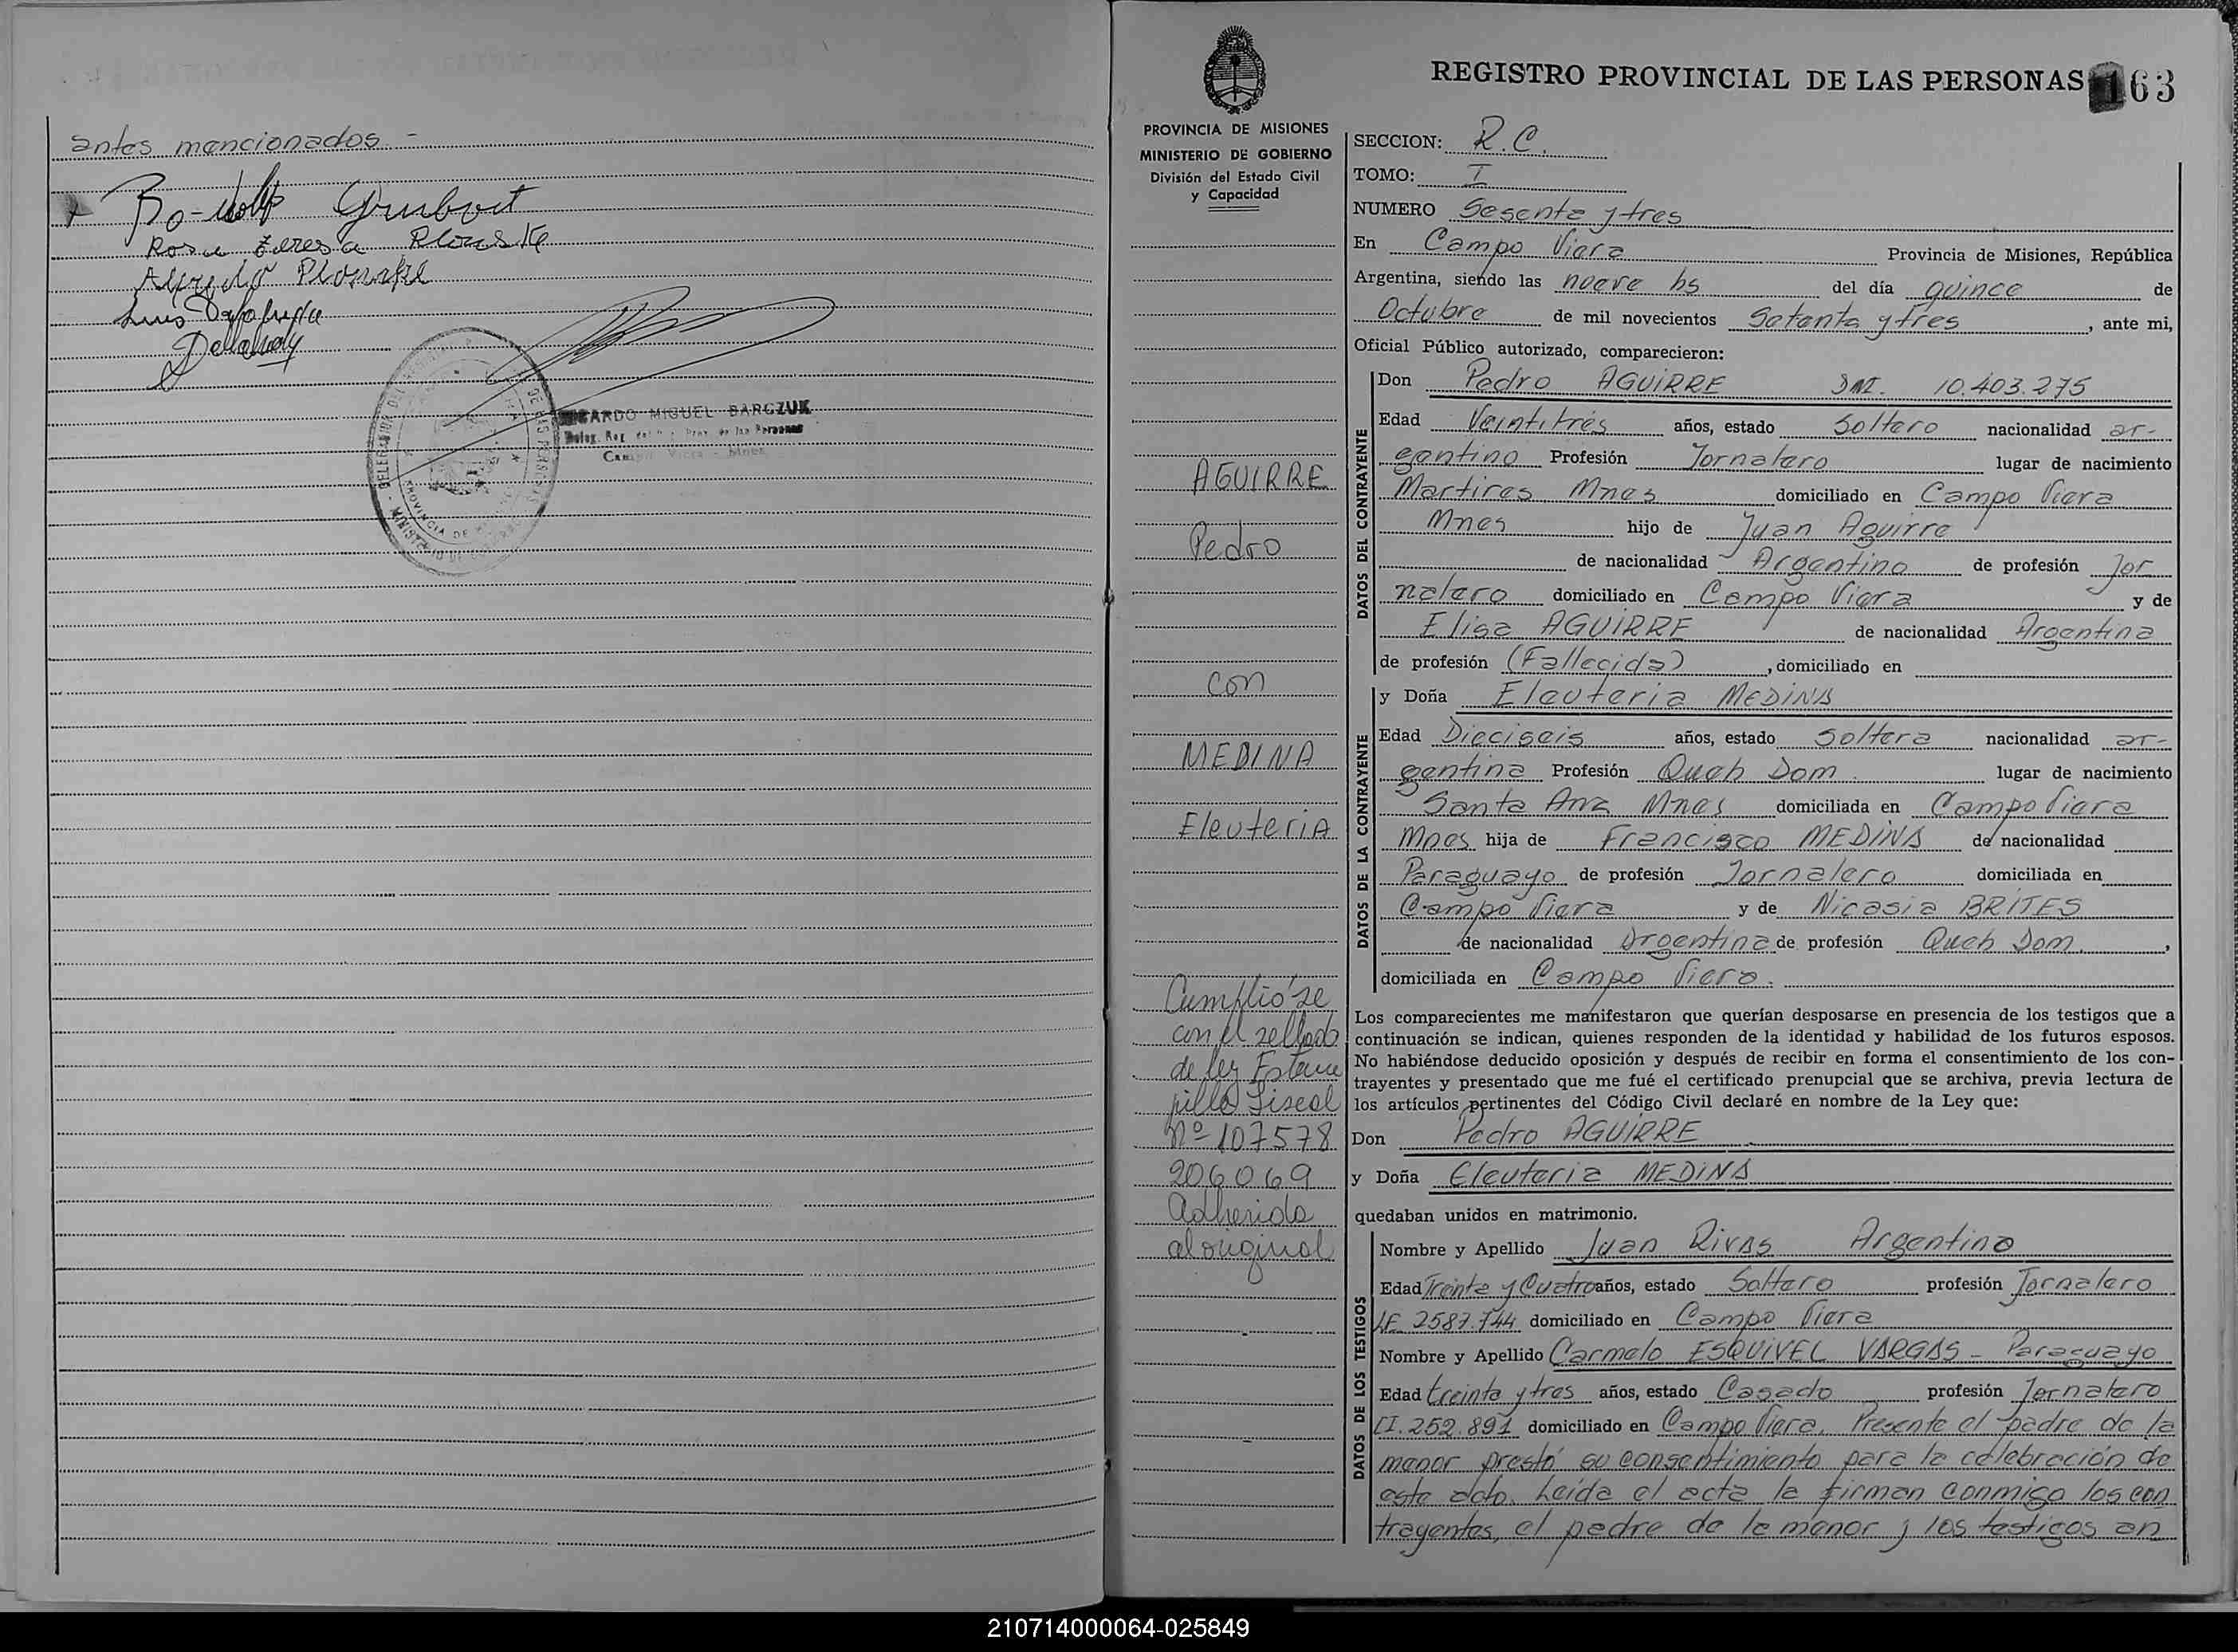 antes mencionados.-
Rosa Teresa Plonske
Alfredo Plonske
RICARDO MIGUEL BARCZUK
Deleg. Reg. de las Personas
Campo Viera - Mnes
PROVINCIA DE
MINISTERIO DE
REGISTRO PROVINCIAL DE LAS PERSONAS 163
PROVINCIA DE MISIONES
MINISTERIO DE GOBIERNO
División del Estado Civil
y Capacidad
AGUIRRE
Pedro
con
MEDINA
EleuteriA
Cumplióse
con el sellado
de ley Estam
pilla Fiscal
Nº 107578
206069
Adherida
al original
SECCION: R.C.
TOMO: I
NUMERO Sesenta y tres
En Campo Viera Provincia de Misiones, República
Argentina, siendo las nueve hs del día quince de
Octubre de mil novecientos Setenta y tres, ante mi,
Oficial Público autorizado, comparecieron:
DATOS DEL CONTRAYENTE
Don Pedro AGUIRRE DNI. 10.403.275
Edad Veintitrés años, estado Soltero nacionalidad ar-
gentino Profesión Jornalero lugar de nacimiento
Martires Mnes domiciliado en Campo Viera
Mnes hijo de Juan Aguirre
de nacionalidad Argentino de profesión Jor
nalero domiciliado en Campo Viera y de
Elisa AGUIRRE de nacionalidad Argentina
de profesión (Fallecida), domiciliado en
DATOS DE LA CONTRAYENTE
y Doña Eleuteria MEDINA
Edad Dieciseis años, estado Soltera nacionalidad ar-
gentina Profesión Queh Dom. lugar de nacimiento
Santa Ana Mnes domiciliada en Campo Viera
Mnes hija de Francisco MEDINA de nacionalidad
Paraguayo de profesión Jornalero domiciliada en
Campo Viera y de Nicasia BRITES
de nacionalidad Argentina de profesión Queh Dom.,
domiciliada en Campo Viera.
Los comparecientes me manifestaron que querían desposarse en presencia de los testigos que a
continuación se indican, quienes responden de la identidad y habilidad de los futuros esposos.
No habiéndose deducido oposición y después de recibir en forma el consentimiento de los con-
trayentes y presentado que me fué el certificado prenupcial que se archiva, previa lectura de
los artículos pertinentes del Código Civil declaré en nombre de la Ley que:
Don Pedro AGUIRRE
y Doña Eleuteria MEDINA
quedaban unidos en matrimonio.
DATOS DE LOS TESTIGOS
Nombre y Apellido Juan Rivas Argentino
Edad Treinta y Cuatro años, estado Soltero profesión Jornalero
LE 2587.744 domiciliado en Campo Viera
Nombre y Apellido Carmelo ESQUIVEL VARGAS - Paraguayo
Edad treinta y tres años, estado Casado profesión Jornalero
CI. 252.891 domiciliado en Campo Viera. Presente el padre de la
menor prestó su consentimiento para la celebración de
este acto. Leída el acta la firman conmigo los con
trayentes, el padre de la menor y los testigos an
210714000064-025849